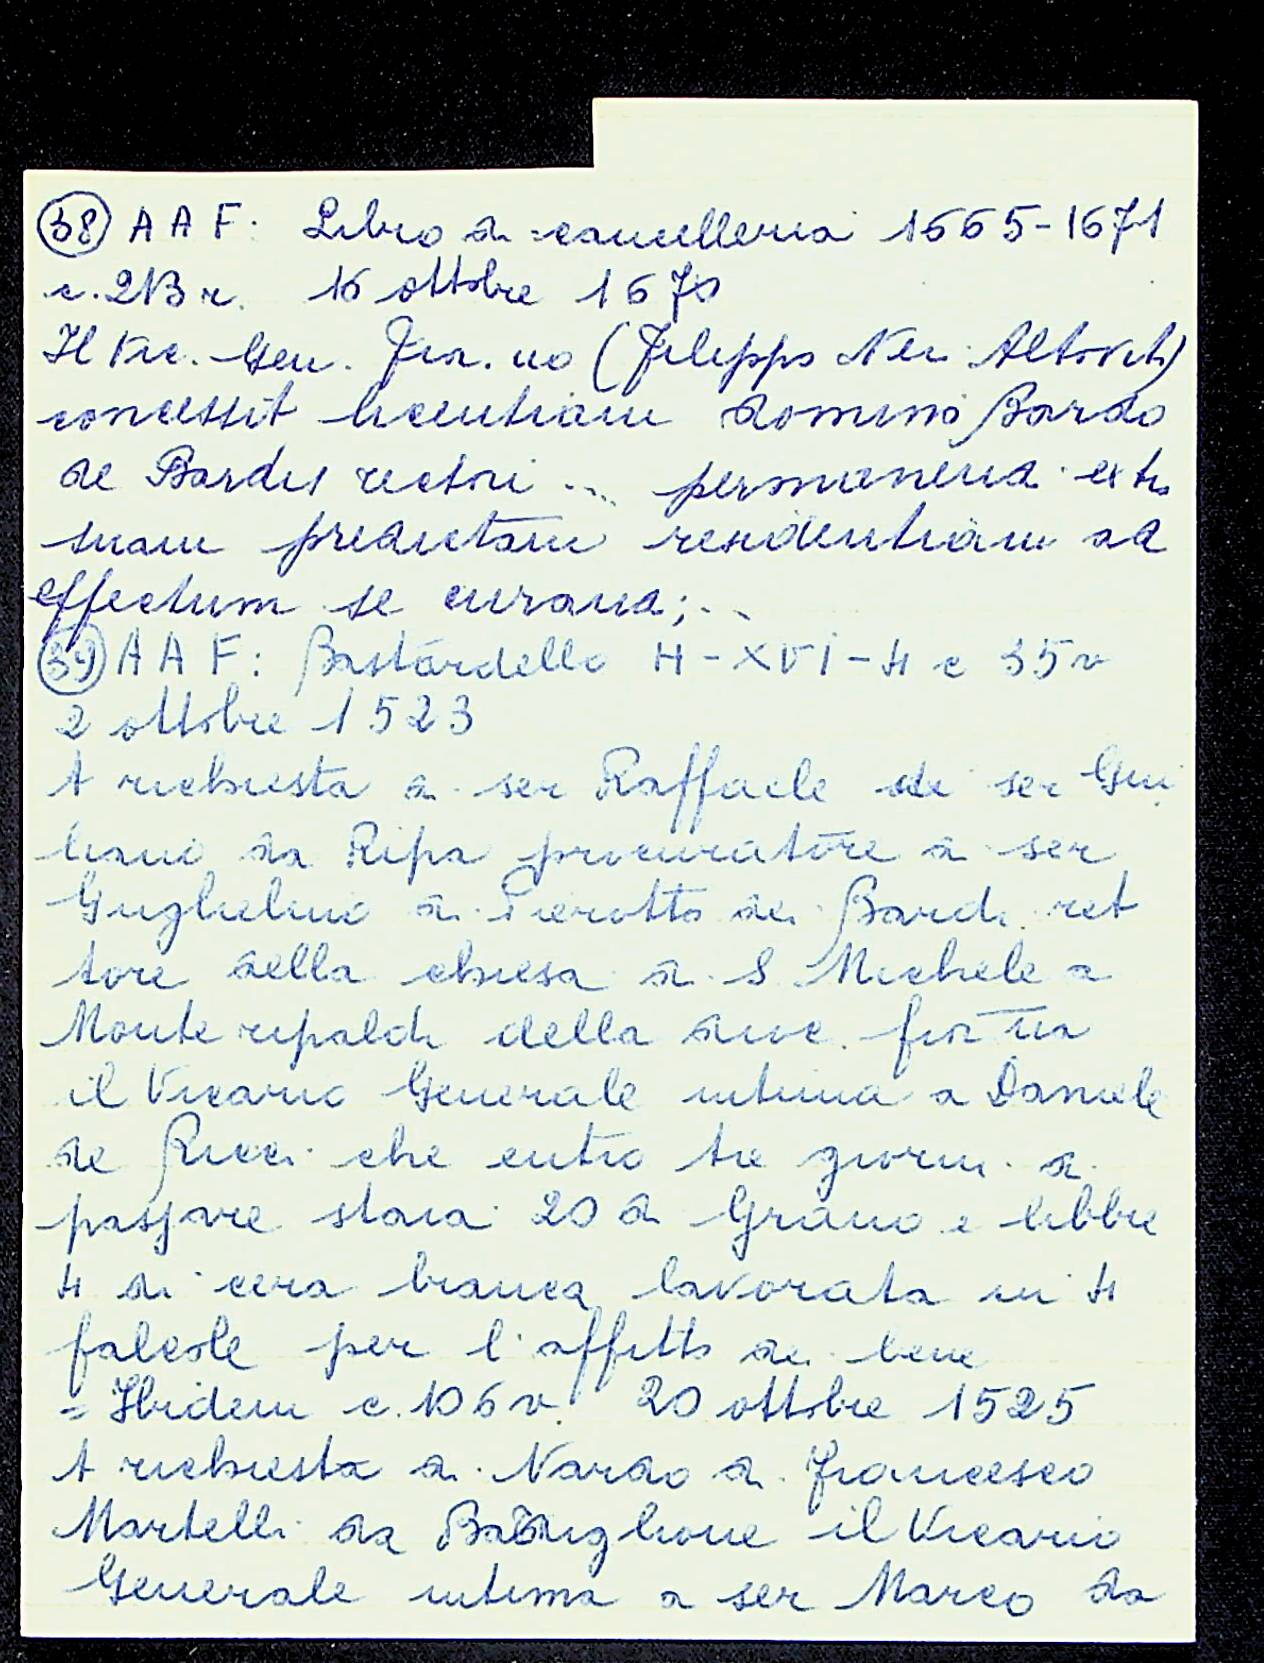 38 A A F: Libro di cancelleria 1665-1671
c. 213 r. 16 ottobre 1670
Il Vic. Gen. Fior. no (Filippo Neri Altoviti)
concessit licentiam domino Bardo
de Bardis rectori .... permanendi extra
suam predictam residentiam ad
effectum se curandi; ..
39 A A F: Bastardello H-XVI-4 c 35v
2 ottobre 1523
A richiesta di ser Raffaele di ser Giu
liano da Ripa procuratore di ser
Guglielmo di Pierotto dei Bardi ret
tore della chiesa di S Michele a
Monteripaldi della dioc. fiorna
il Vicario Generale intima a Daniele
de Ricci che entro tre giorni di
pagare staia 20 di Grano e libbre
4 di cera bianca lavorata in 4
falcole per l'affitto dei beni
= Ibidem c. 106v. 20 ottobre 1525
A richiesta di Nardo di Francesco
Martelli da Badiglione il Vicario
Generale intima a ser Marco da